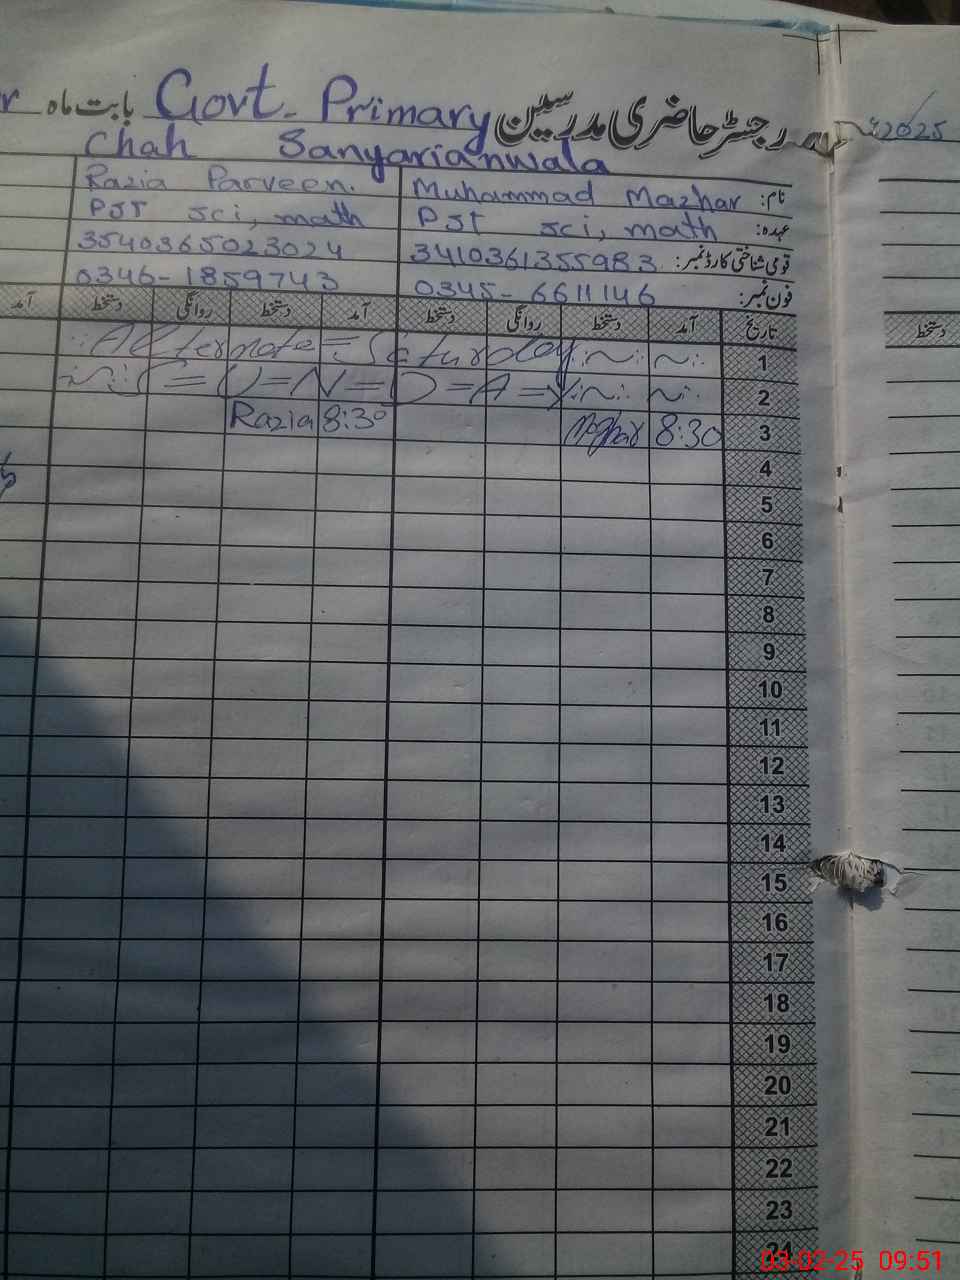 رجسٹر حاضری مدرسین Govt. Primary بابت ماہ
2025
Chah Sanyarianwala
نام: Muhammad Mazhar Razia Parveen.
عہدہ: PST sci, math PST sci, math
قومی شناختی کارڈ نمبر: 3410361355983 3540365023024
فون نمبر: 0345-6611146 0346-1859743
تاریخ آمد دستخط روانگی دستخط آمد دستخط روانگی دستخط آمد
دستخط
1 Alternate = Saturday
2 S=U=N=D=A=Y
3 8:30 8:30 Razia
4
5
6
7
8
9
10
11
12
13
14
15
16
17
18
19
20
21
22
23
24
03-02-25 09:51